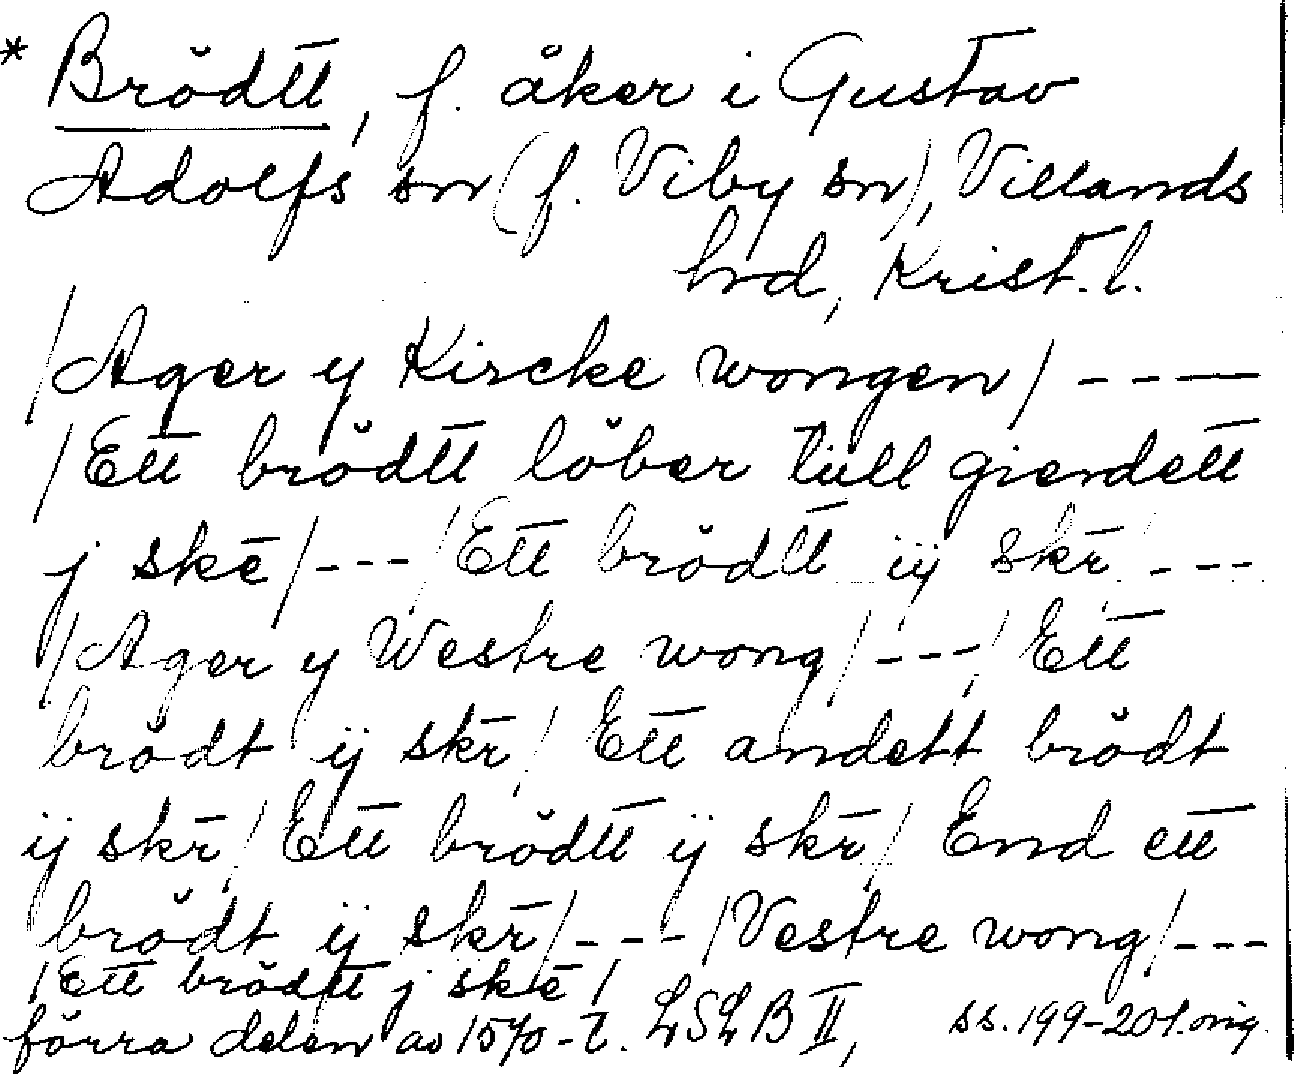 * Brŏdtt, f. åker i Gustav
Adolfs sn (f. Viby sn), Villands
hrd, Krist. l.
/Ager y Kircke wongen/ ----
/Ett brŏdtt lŏber till gierdett
j skē/ --- /Ett brŏdtt iij skr̄/ ---
/Ager y Westre wong/ --- / Ett
brŏdt ij skr̄/ Ett andett brŏdt
ij skr̄/ Ett brŏdtt ij skr̄/ End ett
brŏdt ij skr̄/ --- /Vestre wong/ ---
/Ett brŏdtt j skē/
förra delen av 1570-t. LSLB II, ss. 199-201. orig.